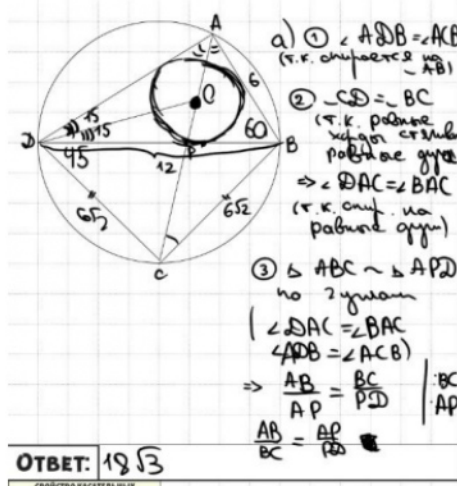 A
O
6
75
15
60
D
45
P
B
12
6√2
6√2
C
а) ① ∠ADB = ∠ACB
(т.к. опирается на
◡AB)
② ◡CD = ◡BC
(т.к. равные
хорды стягив
равные дуги
=> ∠DAC = ∠BAC
(т.к. опир. на
равные дуги)
③ △ABC ~ △APD
по 2 углам
( ∠DAC = ∠BAC
∠ADB = ∠ACB)
=> AB/AP = BC/PD | :BC ·AP
AB/BC = AP/PD
ОТВЕТ: 18√3